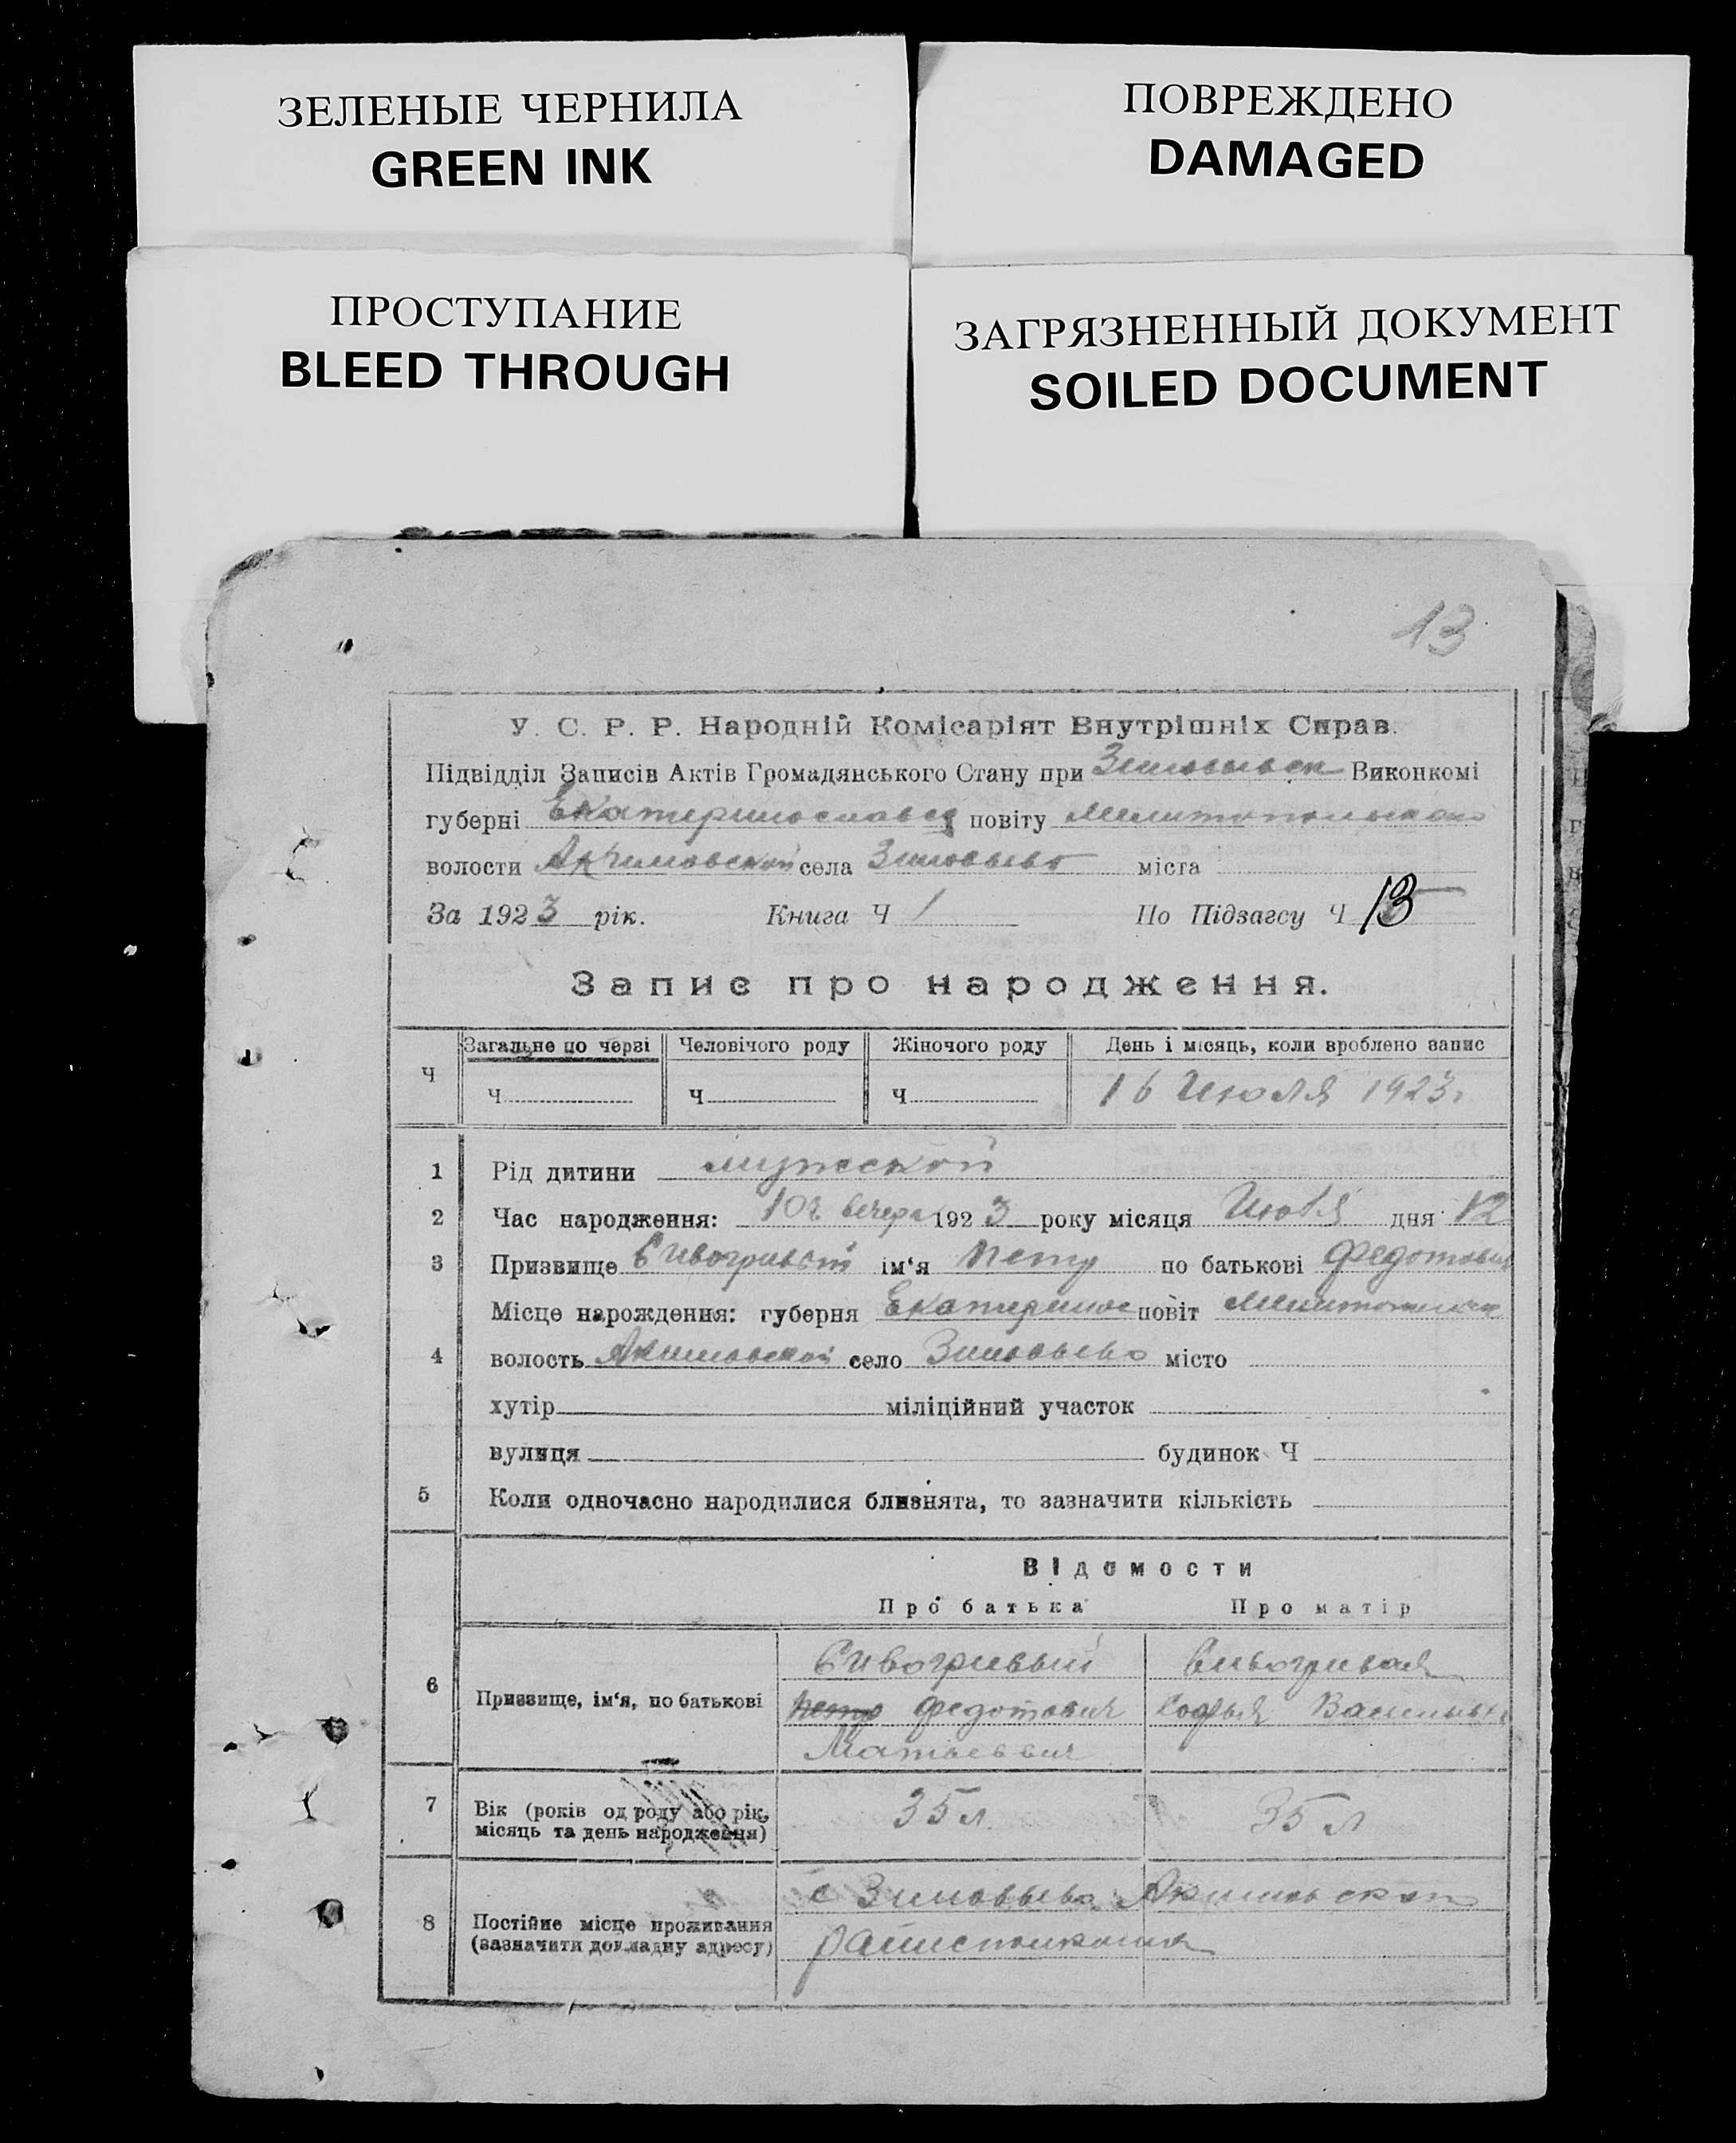 ЗЕЛЕНЫЕ ЧЕРНИЛА
GREEN INK
ПОВРЕЖДЕНО
DAMAGED
ПРОСТУПАНИЕ
BLEED THROUGH
ЗАГРЯЗНЕННЫЙ ДОКУМЕНТ
SOILED DOCUMENT
13
У. С. Р. Р. Народній Комісаріят Внутрішніх Справ.
Підвідділ Записів Актів Громадянського Стану при Виконкомі
губерні Екатеринославск повіту Мелитопольского
волости Акимовской села Зиновьево міста
За 1923 рік. Книга Ч 1 По Підзагсу Ч 13
Запис про народження.
Ч
Загальне по черзі Человічого роду Жіночого роду День і місяць, коли вроблено запис
Ч Ч Ч 16 Июля 1923г
1 Рід дитини мужской
2 Час народження: 10ч вечера 1923 року місяця Июля дня 12
3 Призвище Сивогривый ім‘я Петр по батькові Федотович
Місце нарождення: губерня Екатеринос повіт
4 волость Акимовской село Зиновьево місто
хутір міліційний участок
вулиця будинок Ч
5 Коли одночасно народилися близнята, то зазначити кількість
Відомости
Про батька Про матір
6 Призвище, ім‘я, по батькові
Сивогривый Сивогривая
Петр Федотович Софья
Матвеевич
7 Вік (років од роду або рік, місяць та день народження)
35 л 35 л
8 Постійне місце проживання (зазначити докладну адресу)
с Зиновьево Акимовского